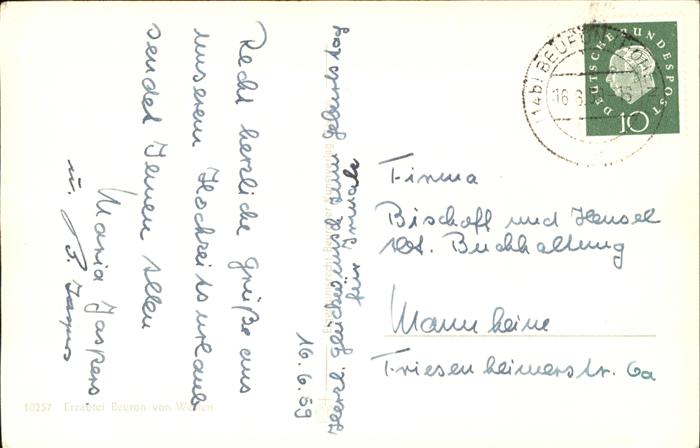 Recht herzliche Grüße aus
unserem Hochzeitsurlaub
sendet Ihnen allen
Maria Jaspers
u.
16.6.59
Herzl. Glückwunsch zum Geburtstag
für
DEUTSCHE BUNDESPOST
10
(14b) BEURON
16.6.
Firma
Bischoff und Hensel
Abt. Buchhaltung
Mannheim
Friesenheimerstr. 6a
10257 Erzabtei Beuron von Westen